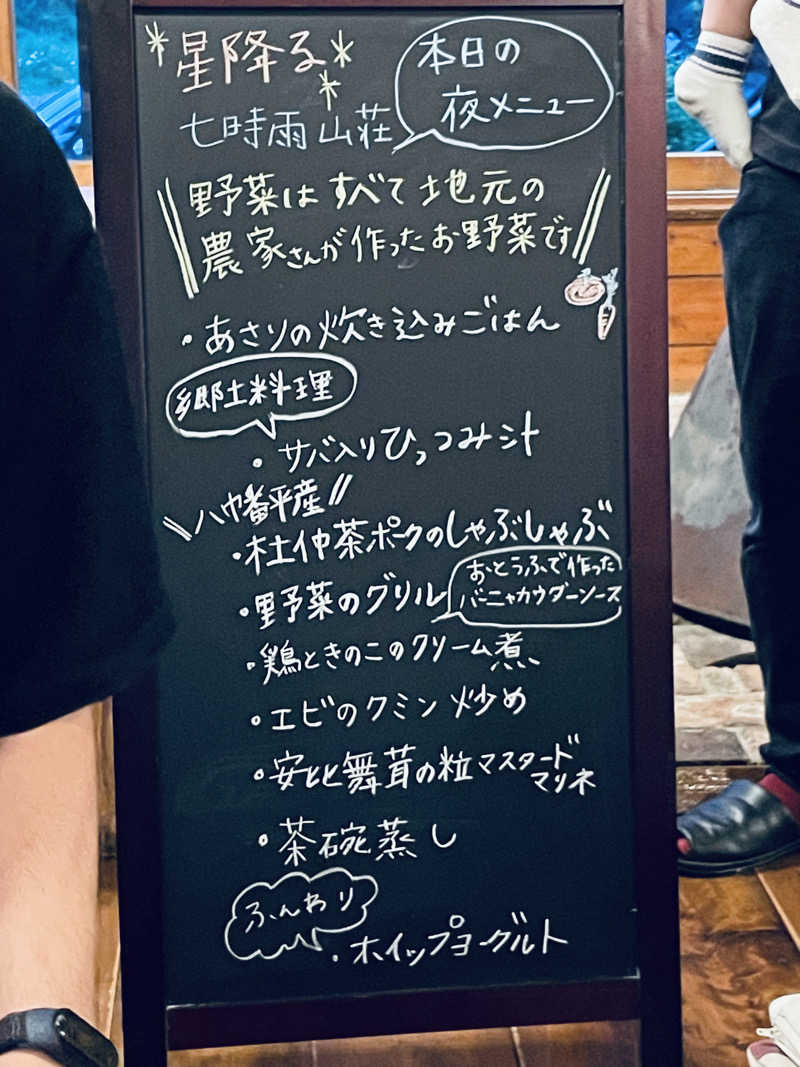 星降る
七時雨山荘
本日の
夜メニュー
野菜はすべて地元の
農家さんが作ったお野菜です
・あさりの炊き込みごはん
郷土料理
・サバ入りひっつみ汁
八幡平産
・杜仲茶ポークのしゃぶしゃぶ
・野菜のグリル
おとうふで作った
バーニャカウダーソース
・鶏ときのこのクリーム煮
・エビのクミン炒め
・安とと舞茸の粒マスタード
マリネ
・茶碗蒸し
ふんわり
・ホイップヨーグルト